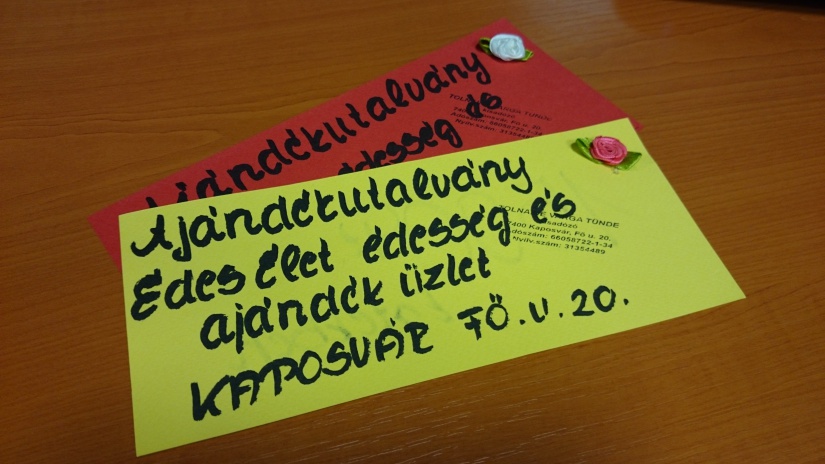 Ajándékutalvány
és
édesség
Ajándékutalvány
Édes Élet édesség és
ajándék üzlet
KAPOSVÁR FŐ.U.20.
VARGA TÜNDE
7400 Kaposvár, Fő u. 20.
Adószám: 66058722-1-34
Nyilv.szám: 31354489